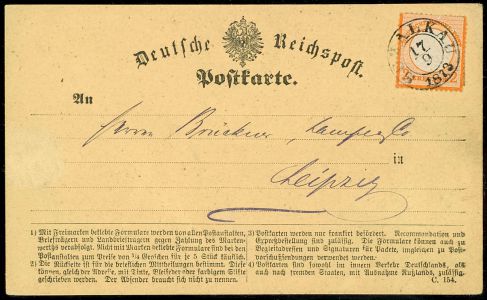 Deutsche Reichspost.
Postkarte.
SCHALKAU
17
9
1873
An
Herrn Brückner, Lampe & Co
in
Leipzig
1) Mit Freimarken beklebte Formulare werden von allen Postanstalten,
Briefträgern und Landbriefträgern gegen Zahlung des Marken-
werths verabfolgt. Nicht mit Marken beklebte Formulare sind bei den
Postanstalten zum Preise von ¼ Groschen für 5 Stück käuflich.
2) Die Rückseite ist für die brieflichen Mittheilungen bestimmt. Diese
können, gleich der Adresse, mit Tinte, Bleifeder oder farbigem Stifte
geschrieben werden. Der Absender braucht sich nicht zu nennen.
3) Postkarten werden nur frankirt befördert. Recommandation und
Expreßbestellung sind zulässig. Die Formulare können auch zu
Begleitadressen und Signaturen für Packete, imgleichen zu Post-
vorschußsendungen, verwendet werden.
4) Postkarten sind sowohl im innern Verkehr Deutschlands, als
auch nach fremden Staaten, mit Ausnahme Rußlands, zulässig.
C. 154.